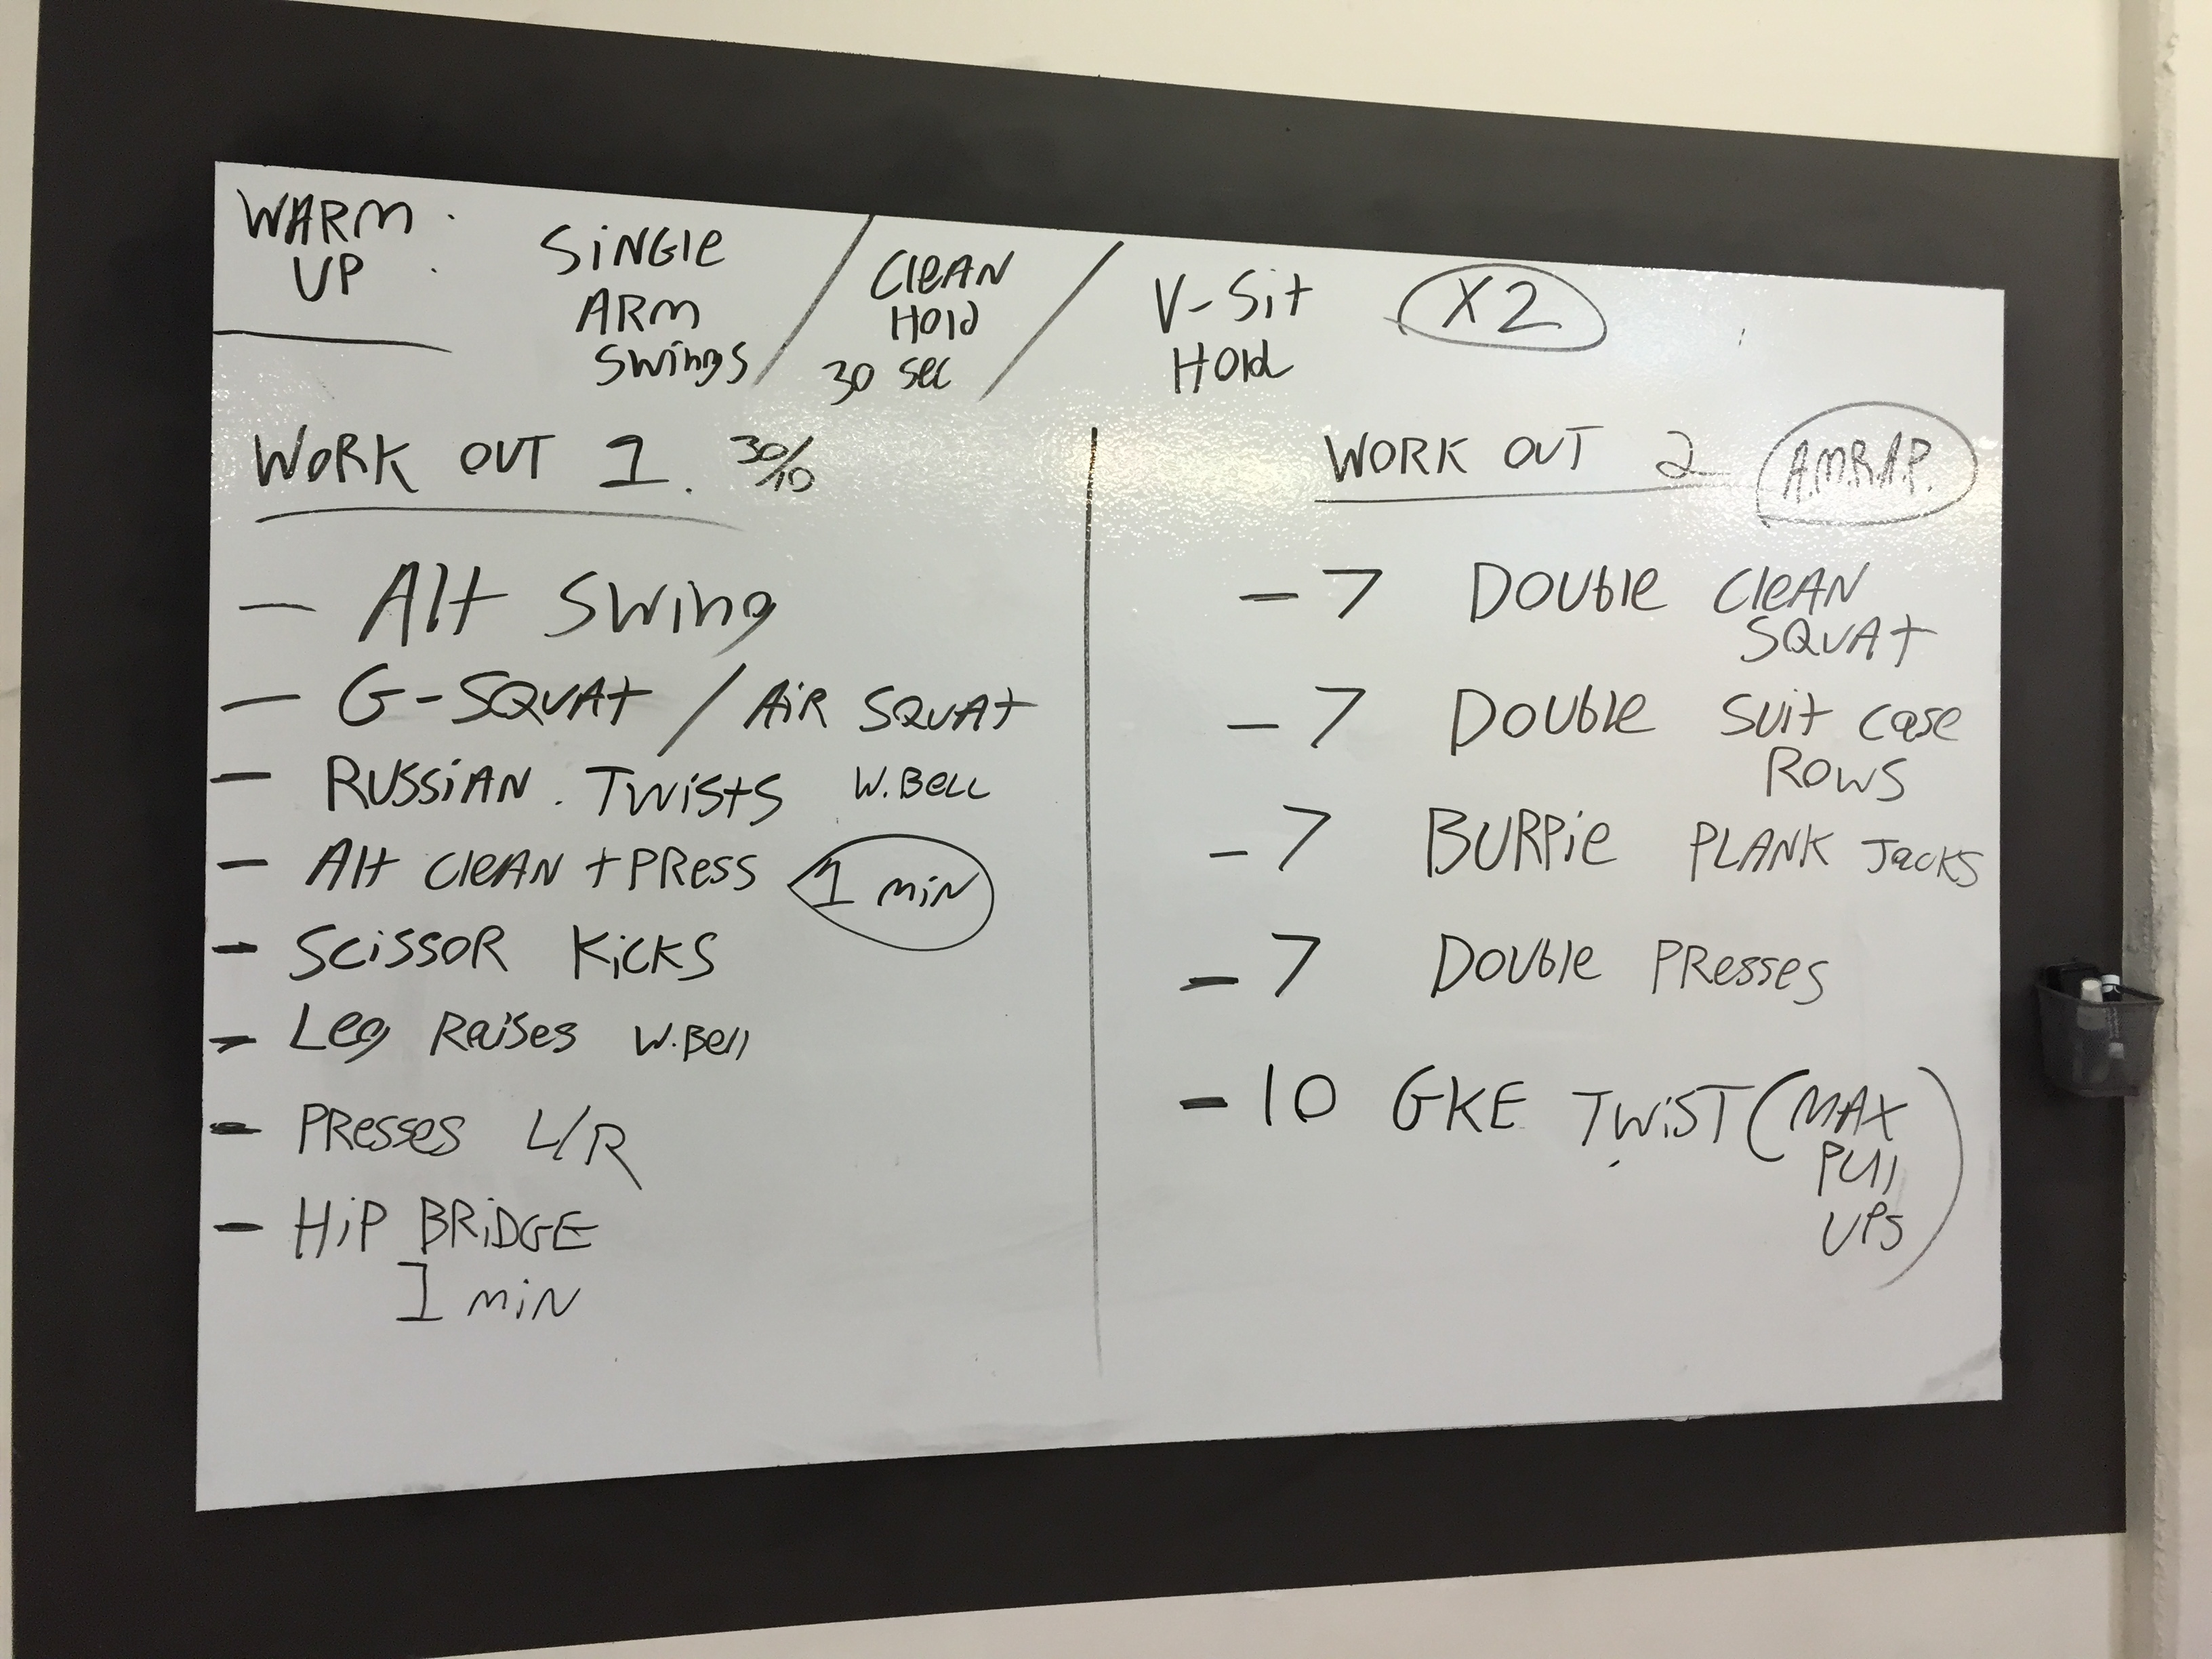 WARM UP :
SINGLE ARM SWINGS / CLEAN HOLD 30 SEC / V-SIT HOLD X2
WORK OUT 1. 30/10
- Alt SWING
- G-SQUAT / AIR SQUAT
- RUSSIAN. TWISTS W. BELL
- Alt CLEAN + PRESS 1 MIN
- SCISSOR KICKS
- Leg Raises W. Bell
- PRESSES L/R
- HIP BRIDGE
1 MIN
WORK OUT 2 A.M.R.A.P.
- 7 DOUBLE CLEAN
SQUAT
- 7 DOUBLE SUIT CASE
ROWS
- 7 BURPIE PLANK JACKS
- 7 DOUBLE PRESSES
- 10 GKE TWIST (MAX
PULL
UPS)